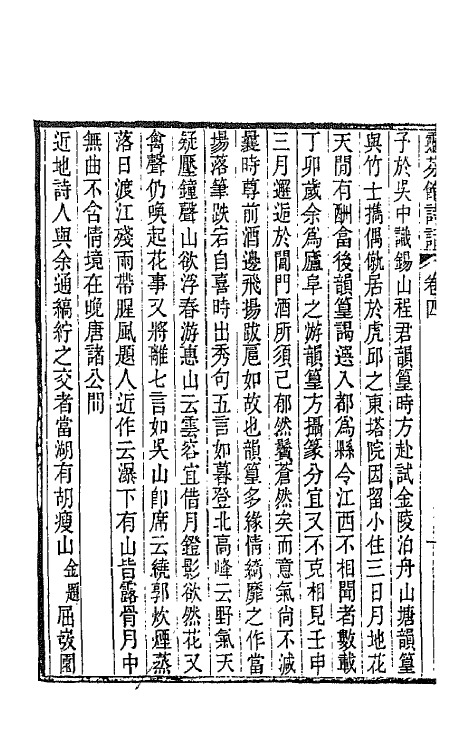 靈芬館詩話　卷四
子於吳中識錫山程君韻篁時方赴試金陵泊舟山塘韻篁
與竹士攜偶僦居於虎邱之東塔院因留小住三日月地花
天閒有酬畣後韻篁謁選入都爲縣令江西不相聞者數載
丁卯歲余爲廬阜之游韻篁方攝篆分宜又不克相見壬申
三月邂逅於閶門酒所須已郁然鬢蒼然矣而意氣尙不減
曩時尊前酒邊飛揚跋扈如故也韻篁多緣情綺靡之作當
場落筆跌宕自喜時出秀句五言如暮登北高峰云野氣天
疑壓鐘聲山欲浮春游惠山云雲容宜借月鐙影欲然花又
禽聲仍喚起花事又將離七言如吳山卽席云繞郭炊煙蒸
落日渡江殘雨帶腥風題人近作云瀑下有山皆露骨月中
無曲不含情境在晚唐諸公間
近地詩人與余通稿紵之交者當湖有胡瘦山金題屈弢園